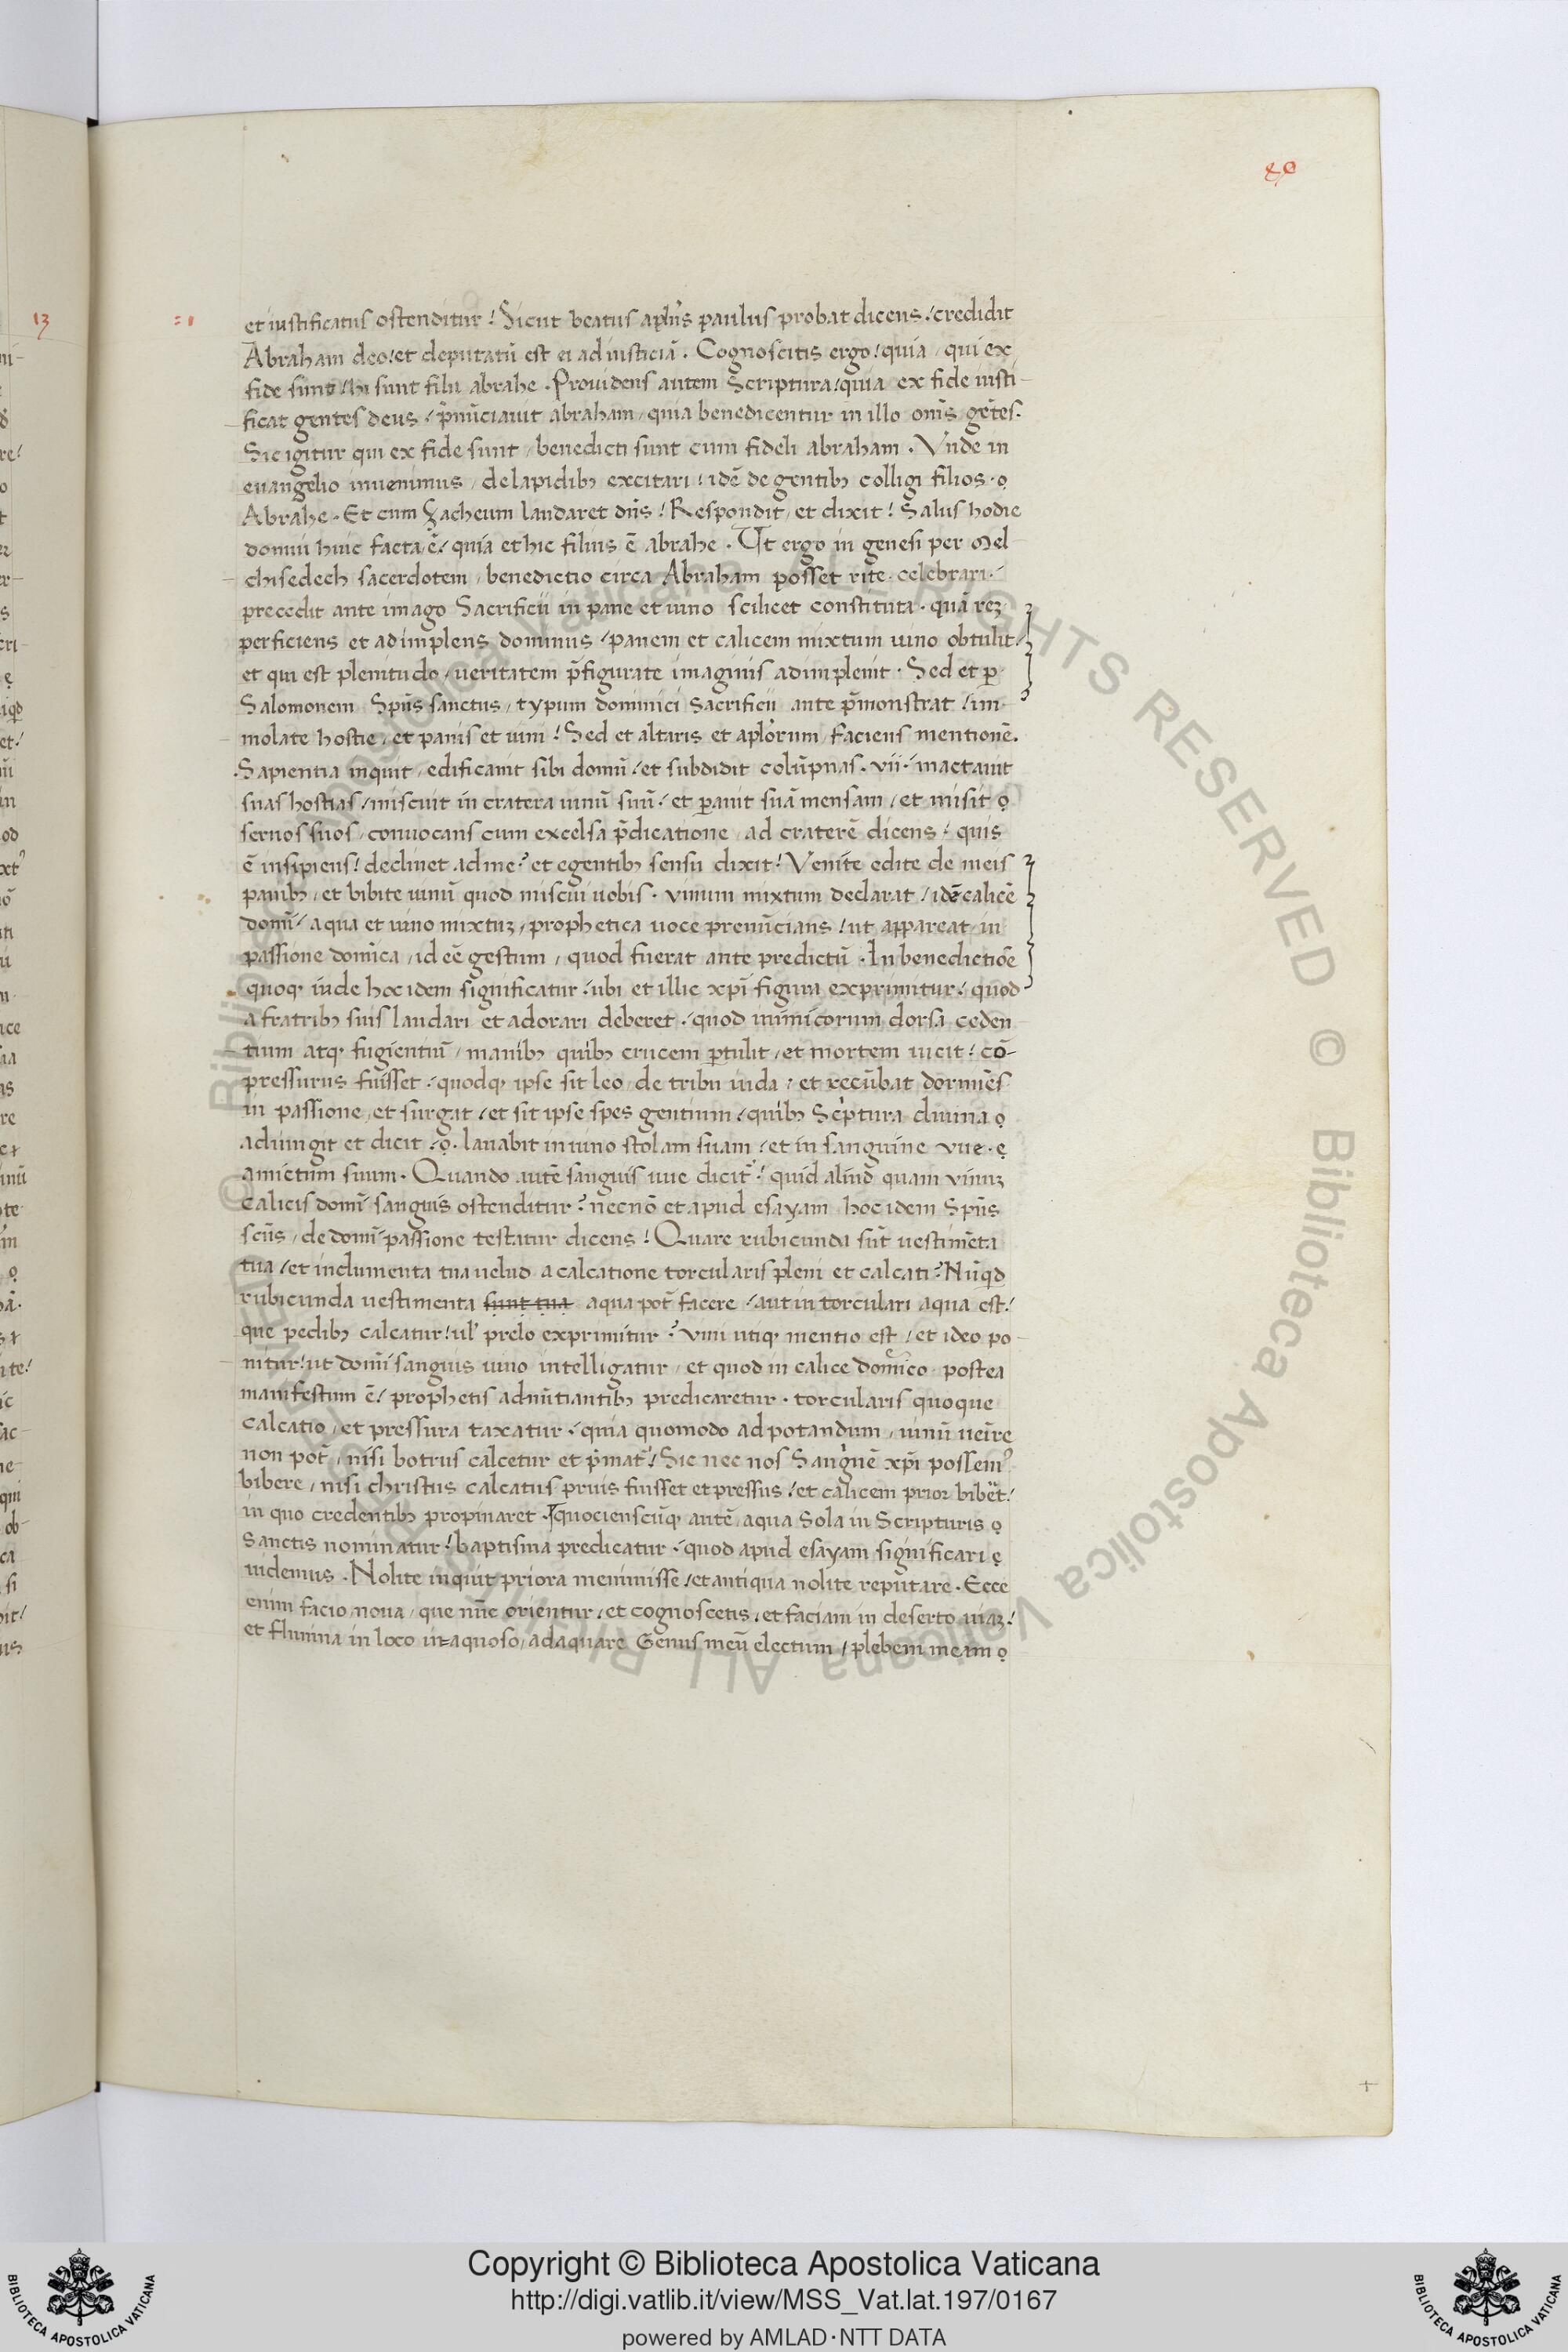 80
13
et iustificatus ostenditur! Sicut beatus apl̃us paulus probat dicens! credidit
Abraham deo! et deputatũ est ei ad iusticiã. Cognoscitis ergo! quia, qui ex
fide sunt! hi sunt filii abrahe. Prouidens autem Scriptura! quia ex fide iusti-
ficat gentes deus! p̃nũciauit abraham, quia benedicentur in illo om̃s gẽtes.
Sic igitur qui ex fide sunt, benedicti sunt cum fideli abraham. Vnde in
euangelio inuenimus, de lapidibꝫ excitari! idẽ de gentibꝫ colligi filios.
Abrahe. Et cum Zacheum laudaret dñs! Respondit, et dixit! Salus hodie
domui huic facta ẽ! quia et hic filius ẽ abrahe. Ut ergo in genesi per Mel-
chisedech sacerdotem, benedictio circa Abraham posset rite celebrari!
precedit ante imago Sacrificii in pane et uino scilicet constituta. quã reꝫ
perficiens et adimplens dominus! panem et calicem mixtum uino obtulit!
et qui est plenitudo, ueritatem p̃figurate imaginis adimpleuit. Sed et ꝑ
Salomonem Sp̃us sanctus, typum dominici Sacrificii ante p̃monstrat! im-
molate hostie, et panis et uini! Sed et altaris et apl̃orum, faciens mentionẽ.
Sapientia inquit, edificauit sibi domũ! et subdidit colũpnas. vii. mactauit
suas hostias! miscuit in cratera uinũ suũ! et ꝑauit suã mensam, et misit
seruos suos, conuocans cum excelsa p̃dicatione, ad craterẽ dicens! quis
ẽ insipiens! declinet ad me! et egentibꝫ sensu dixit! Venite edite de meis
panibꝫ, et bibite uinũ quod miscui uobis. vinum mixtum declarat! idẽ calicẽ
domĩ! aqua et uino mixtuꝫ, prophetica uoce prenũcians! ut appareat in
passione domĩca, id eẽ gestum, quod fuerat ante predictũ. In benedictiõe
quoqꝫ iude hoc idem significatur! ubi et illic xp̃i figura exprimitur! quod
a fratribꝫ suis laudari et adorari deberet! quod inimicorum dorsa ceden-
tium atqꝫ fugientiũ, manibꝫ quibꝫ crucem ꝑtulit, et mortem uicit! cõ-
pressurus fuisset! quodqꝫ ipse sit leo, de tribu iuda! et recũbat dormiẽs
in passione, et surgat! et sit ipse spes gentium! quibꝫ Scͥptura diuina
adiungit et dicit! lauabit in uino stolam suam! et in sanguine vue.
amictum suum. Quando autẽ sanguis uue dicit̃! quid aliud quam vinuꝫ
calicis domĩ sanguis ostenditur? necnõ et apud esayam hoc idem Sp̃us
scũs, de domĩ passione testatur dicens! Quare rubicunda sũt uestimẽta
tua! et indumenta tua uelud a calcatione torcularis pleni et calcati? Nũqͥd
rubicunda uestimenta sunt tua aqua pot̃ facere! aut in torculari aqua est!
que pedibꝫ calcatur! ul̃ prelo exprimitur? vini utiqꝫ mentio est! et ideo po-
nitur! ut domĩ sanguis uino intelligatur, et quod in calice domico postea
manifestum ẽ! prophetis adnũtiantibꝫ predicaretur. torcularis quoque
calcatio, et pressura taxatur! quia quomodo ad potandum, uinũ ueĩre
non pot̃, nisi botrus calcetur et p̃mat̃! Sic nec nos Sanguͥnẽ xp̃i possemꝰ
bibere, nisi christus calcatus prius fuisset et pressus! et calicem prior bibẽt!
in quo credentibꝫ propinaret. quocienscũqꝫ autẽ, aqua Sola in Scripturis
Sanctis nominatur! baptisma predicatur! quod apud esayam significari
uidemus. Nolite inquit priora meminisse! et antiqua nolite reputare. Ecce
enim facio noua, que nũc orientur, et cognoscetis, et faciam in deserto uiaꝫ!
et flumina in loco in=aquoso, adaquare Genus meũ electum, plebem meam
© Biblioteca Apostolica Vaticana ALL RIGHTS RESERVED
BIBLIOTECA APOSTOLICA VATICANA
Copyright © Biblioteca Apostolica Vaticana
http://digi.vatlib.it/view/MSS_Vat.lat.197/0167
powered by AMLAD·NTT DATA
BIBLIOTECA APOSTOLICA VATICANA